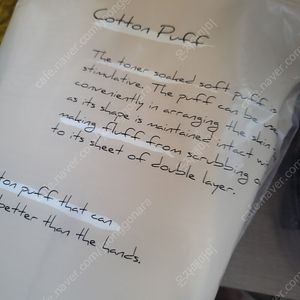 Cotton Puff
The toner soaked soft puff is
stimulative. The puff can be use
conveniently in arranging the skin
as its shape is maintained intact w
making fluff from scrubbing
to its sheet of double layer.
ton puff that can
better than the hands.